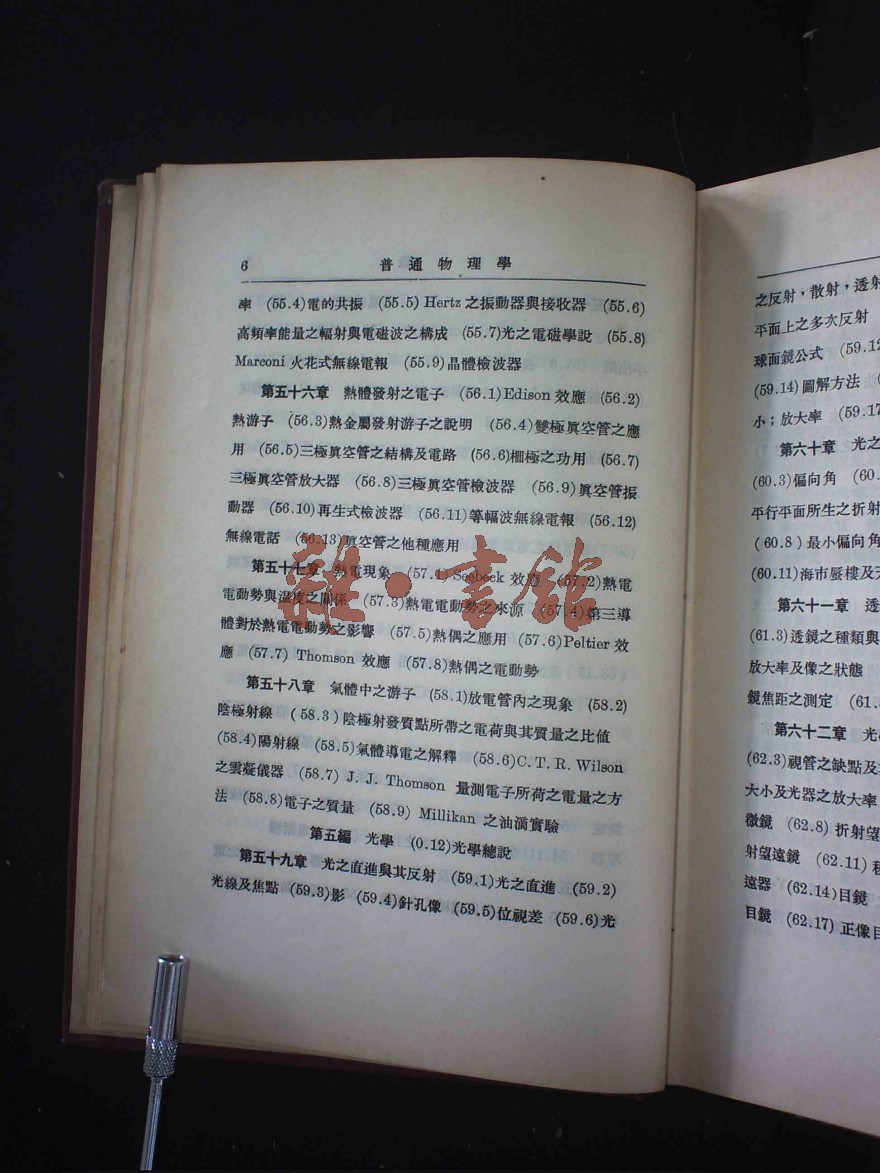 6 普通物理學
率 (55.4)電的共振 (55.5) Hertz 之振動器與接收器 (55.6)
高頻率能量之輻射與電磁波之構成 (55.7)光之電磁學說 (55.8)
Marconi 火花式無線電報 (55.9)晶體檢波器
第五十六章 熱體發射之電子 (56.1)Edison 效應 (56.2)
熱游子 (56.3)熱金屬發射游子之說明 (56.4)雙極眞空管之應
用 (56.5)三極眞空管之結構及電路 (56.6)柵極之功用 (56.7)
三極眞空管放大器 (56.8)三極眞空管檢波器 (56.9)眞空管振
動器 (56.10)再生式檢波器 (56.11)等幅波無線電報 (56.12)
無線電話 (56.13)眞空管之他種應用
第五十七章 熱電現象 (57.1) Seebeck 效應 (57.2)熱電
電動勢與溫度之關係 (57.3)熱電電動勢之來源 (57.4)第三導
體對於熱電電動勢之影響 (57.5)熱偶之應用 (57.6)Peltier 效
應 (57.7) Thomson 效應 (57.8)熱偶之電動勢
第五十八章 氣體中之游子 (58.1)放電管內之現象 (58.2)
陰極射線 (58.3)陰極射發質點所帶之電荷與其質量之比值
(58.4)陽射線 (58.5)氣體導電之解釋 (58.6)C. T. R. Wilson
之雲凝儀器 (58.7) J. J. Thomson 量測電子所荷之電量之方
法 (58.8)電子之質量 (58.9) Millikan 之油滴實驗
第五編 光學 (0.12)光學總說
第五十九章 光之直進與其反射 (59.1)光之直進 (59.2)
光線及焦點 (59.3)影 (59.4)針孔像 (59.5)位視差 (59.6)光
雜·書館
之反射，散射，透射
平面上之多次反射
球面鏡公式 (59.12
(59.14)圖解方法
小；放大率 (59.17
第六十章 光之
(60.3)偏向角 (60.
平行平面所生之折射
(60.8)最小偏向角
(60.11)海市蜃樓及天
第六十一章 透
(61.3)透鏡之種類與
放大率及像之狀態
鏡焦距之測定 (61.
第六十二章 光
(62.3)視管之缺點及
大小及光器之放大率
微鏡 (62.8) 折射望
射望遠鏡 (62.11)
遠器 (62.14)目鏡
目鏡 (62.17) 正像目